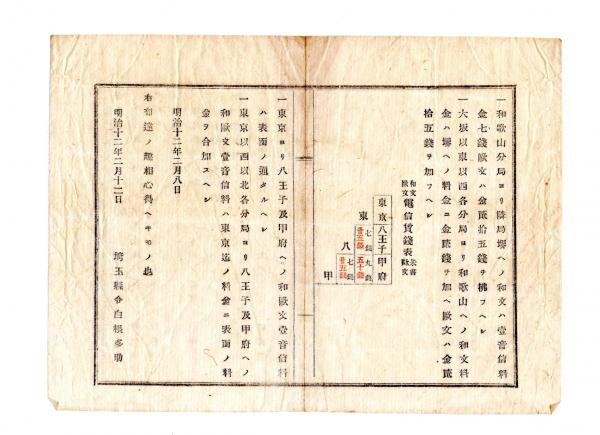 一和歌山分局ヨリ隣局堺ヘノ和文ハ壹音信料
金七錢歐文ハ金貳拾五錢ヲ拂フヘシ
一大坂以東以西各分局ヨリ和歌山ヘノ和文料
金ハ堺ヘノ料金ニ金貳錢ヲ加ヘ歐文ハ金貳
拾五錢ヲ加フヘシ
和文歐文電信賃錢表朱書歐文
東京八王子甲府
東 七錢 九錢
廿五錢 五十錢
八 七錢
廿五錢
甲
一東京ヨリ八王子及甲府ヘノ和歐文壹音信料
ハ表面ノ通タルヘシ
一東京以西以北各分局ヨリ八王子及甲府ヘノ
和歐文壹音信料ハ東京迄ノ料金ニ表面ノ料
金ヲ合加スヘシ
明治十二年二月八日
右布達ノ趣相心得ヘキモノ也
明治十二年二月十二日
埼玉縣令白根多助